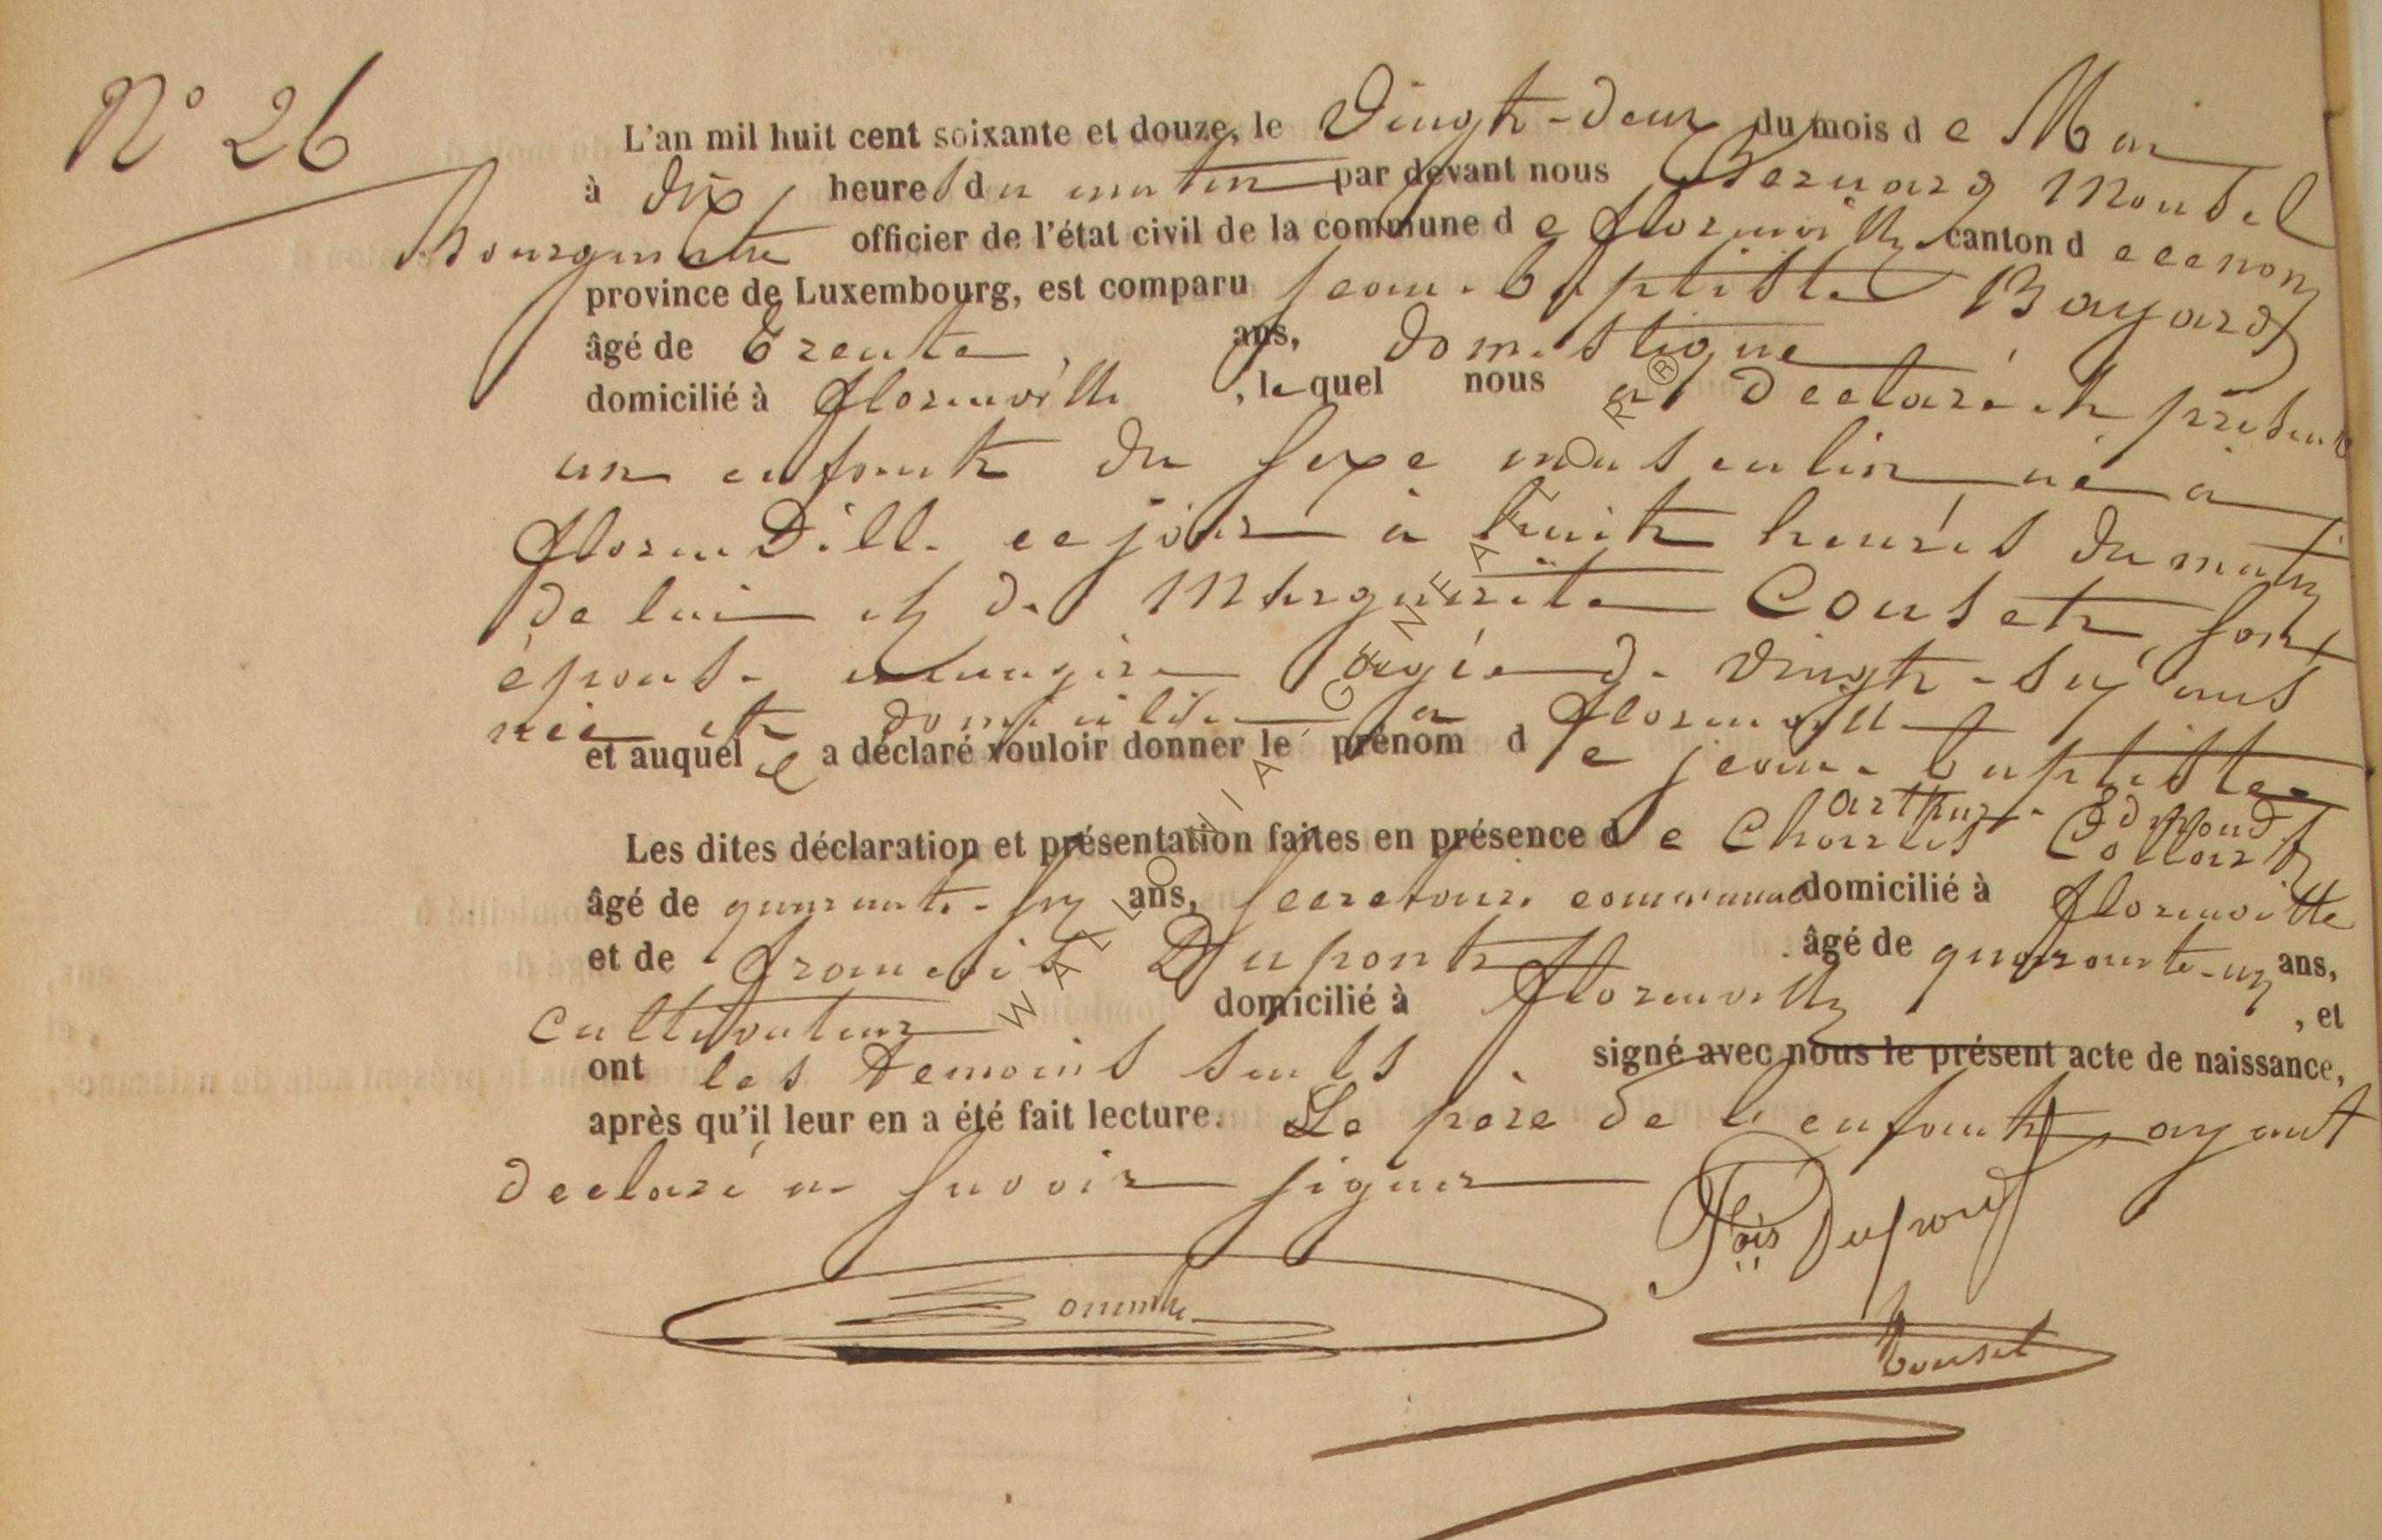 N° 26
L'an mil huit cent soixante et douze, le Vingt-deux du mois de Mai
à dix heures du matin par devant nous Bernard Mousel
Bourgmestre officier de l'état civil de la commune de florenville canton de idem
province de Luxembourg, est comparu jean-baptiste Bayard
âgé de trente ans, domestique
domicilié à florenville, lequel nous a déclaré et présenté
un enfant du sexe masculin né à
florenville ce jour à huit heures du matin
de lui et de Marguerite Couset son
épouse ménagère agée de vingt-six ans
née et domiciliée à florenville
et auquel il a déclaré vouloir donner le prénom de jean-baptiste
arthur Edmond
Les dites déclaration et présentation faites en présence de Charles Collart
âgé de quarante-six ans, secrétaire communal domicilié à florenville
et de francois Dupont âgé de quarante-un ans,
cultivateur domicilié à florenville , et
ont les témoins seuls signé avec nous le présent acte de naissance,
après qu'il leur en a été fait lecture. Le père de l'enfant ayant
declaré ne savoir signer
Fçois Dupont
Mousel
WALLONIA GENEALTOR®